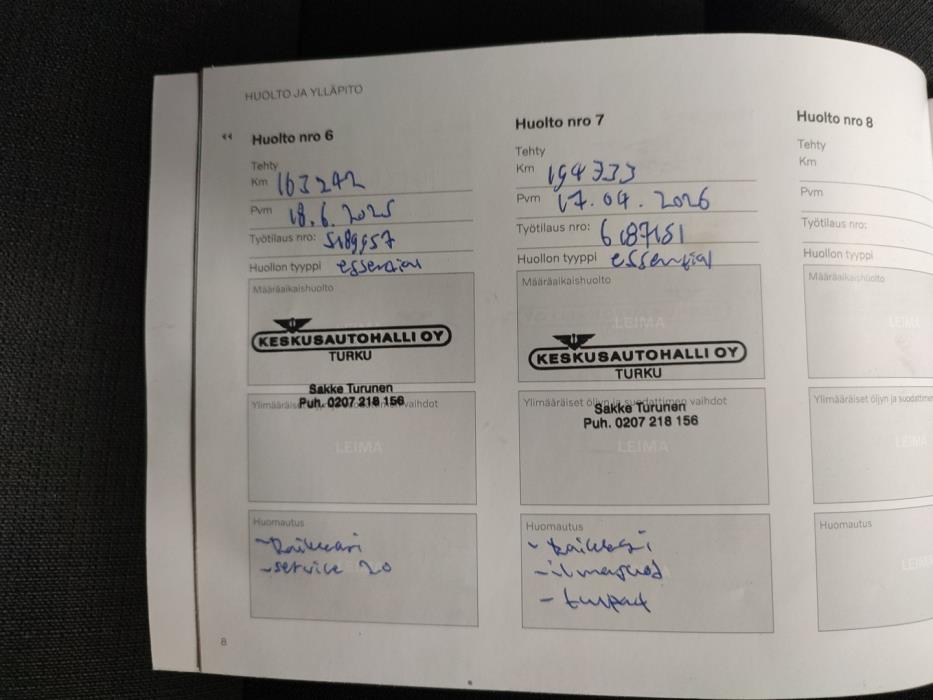 HUOLTO JA YLLÄPITO
Huolto nro 6
Tehty
Km 163242
Pvm 18.6.2025
Työtilaus nro:
Huollon tyyppi essential
Määräaikaishuolto
KESKUSAUTOHALLI OY
TURKU
Sakke Turunen
Puh. 0207 218 156
Ylimääräiset vaihdot
LEIMA
Huomautus
-service 20
8
Huolto nro 7
Tehty
Km 194733
Pvm 17.04.2026
Työtilaus nro:
Huollon tyyppi essential
Määräaikaishuolto
LEIMA
KESKUSAUTOHALLI OY
TURKU
Ylimääräiset öljyn ja suodattimen vaihdot
Sakke Turunen
Puh. 0207 218 156
LEIMA
Huomautus
Huolto nro 8
Tehty
Km
Pvm
Työtilaus nro:
Huollon tyyppi
Määräaikaishuolto
LEIMA
Ylimääräiset öljyn ja suodattime
LEIMA
Huomautus
LEIM